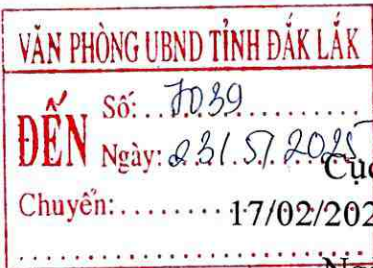 VĂN PHÒNG UBND TỈNH ĐẮK LẮK
ĐẾN
Số: 7039
Ngày: 23/5/2025
Cục
Chuyển: 17/02/202